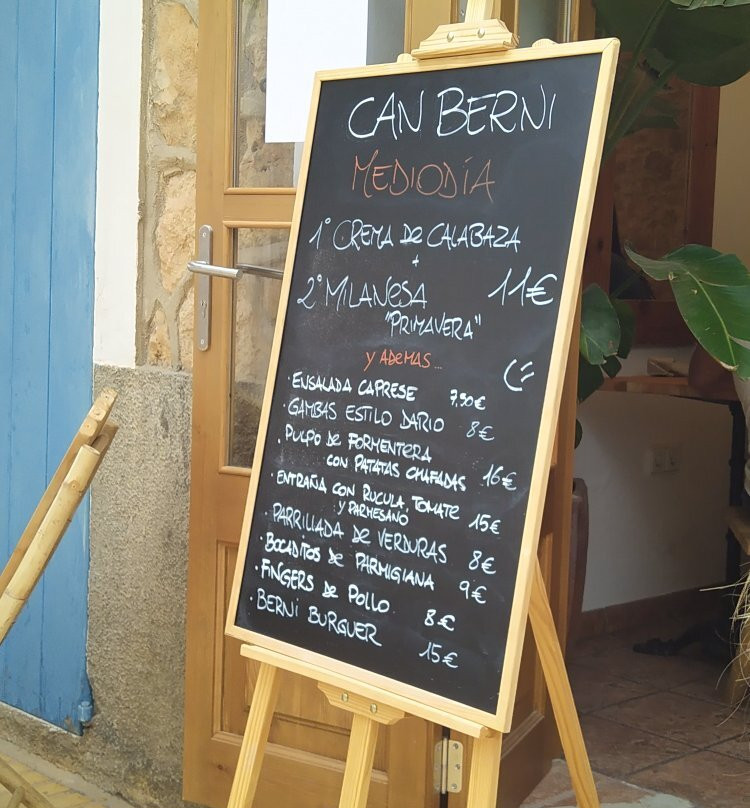 CAN BERNI
MEDIODÍA
1º CREMA DE CALABAZA
+
2º MILANESA 11€
"PRIMAVERA"
Y ADEMAS...
· ENSALADA CAPRESE 7,50€
· GAMBAS ESTILO DARIO 8€
· PULPO DE FORMENTERA
CON PATATAS CHAFADAS 16€
· ENTRAÑA CON RUCULA, TOMATE
Y PARMESANO 15€
· PARRILLADA DE VERDURAS 8€
· BOCADITOS DE PARMIGIANA 9€
· FINGERS DE POLLO 8€
· BERNI BURGUER 15€